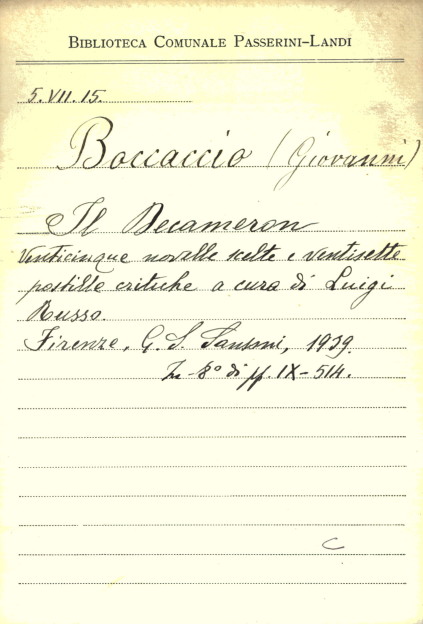 BIBLIOTECA COMUNALE PASSERINI-LANDI
5.VII.15.
Boccaccio (Giovanni)
Il Decameron
Venticinque novelle scelte e ventisette
postille critiche a cura di Luigi
Russo.
Firenze, G. S. Sansoni, 1939.
In-8º di pp. IX-514.
C